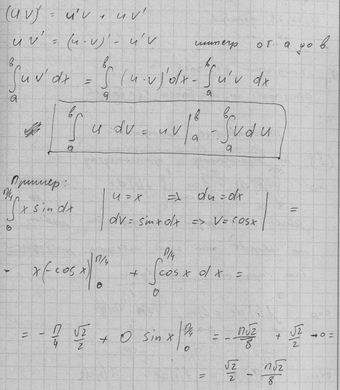 (u v)' = u'v + uv'
u v' = (u·v)' - u'v интегр от a до в
∫ₐᵇ uv'dx = ∫ₐᵇ (u·v)'dx - ∫ₐᵇ u'v dx
∫ₐᵇ u dv = uv|ₐᵇ - ∫ₐᵇ v du
Пример:
∫₀^(π/4) x sin dx | u = x => du = dx
dv = sinx dx => v = cosx | =
- x(-cosx)|₀^(π/4) + ∫₀^(π/4) cosx dx =
= - π/4 √2/2 + 0 sin x|₀^(π/4) = - π√2/8 + √2/2 → 0 =
= √2/2 - π√2/8